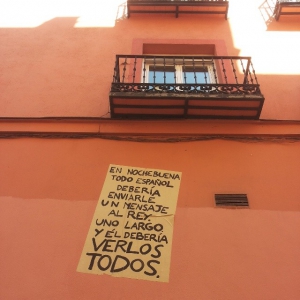 EN NOCHEBUENA
TODO ESPAÑOL
DEBERÍA
ENVIARLE
UN MENSAJE
AL REY.
UNO LARGO
Y ÉL DEBERÍA
VERLOS
TODOS.